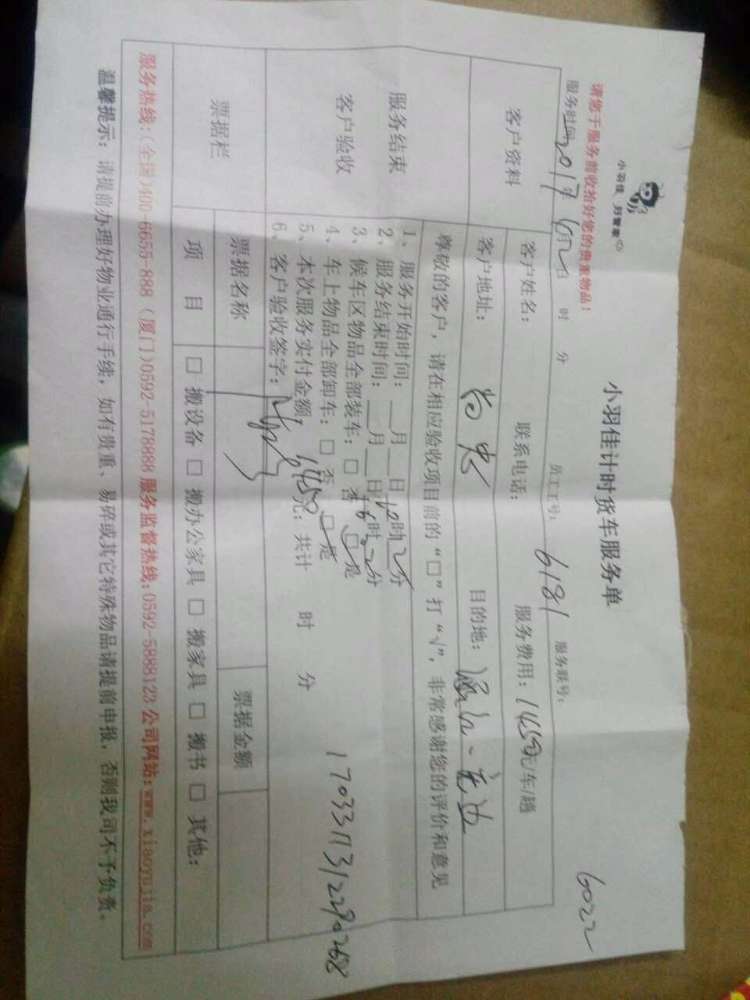 小羽佳 好管家
小羽佳计时货车服务单
6022
请您于服务前收拾好您的贵重物品！
服务时间：2017年 日 时 分 员工工号：6181 服务联号：
客户资料
客户姓名： 联系电话： 服务费用：1450元/车/趟
客户地址： 目的地：
尊敬的客户，请在相应验收项目前的“□”打“√”，非常感谢您的评价和意见
服务结束
客户验收
1、服务开始时间：__月__日 时 分
2、服务结束时间：__月__日16时 分
3、候车区物品全部装车：□ 否 □ 是
4、车上物品全部卸车：□ 否 □ 是
5、本次服务实付金额：1450元；共计 时 分
6、客户验收签字：
票据栏
票据名称 票据金额
项 目 □ 搬设备 □ 搬办公家具 □ 搬家具 □ 搬书 □ 其他：
服务热线：（全国）400-6655-888（厦门）0592-5178888 服务监督热线：0592-5888123 公司网站：www.xiaoyujia.com
温馨提示：请提前办理好物业通行手续，如有贵重、易碎或其它特殊物品请提前申报，否则我司不予负责。